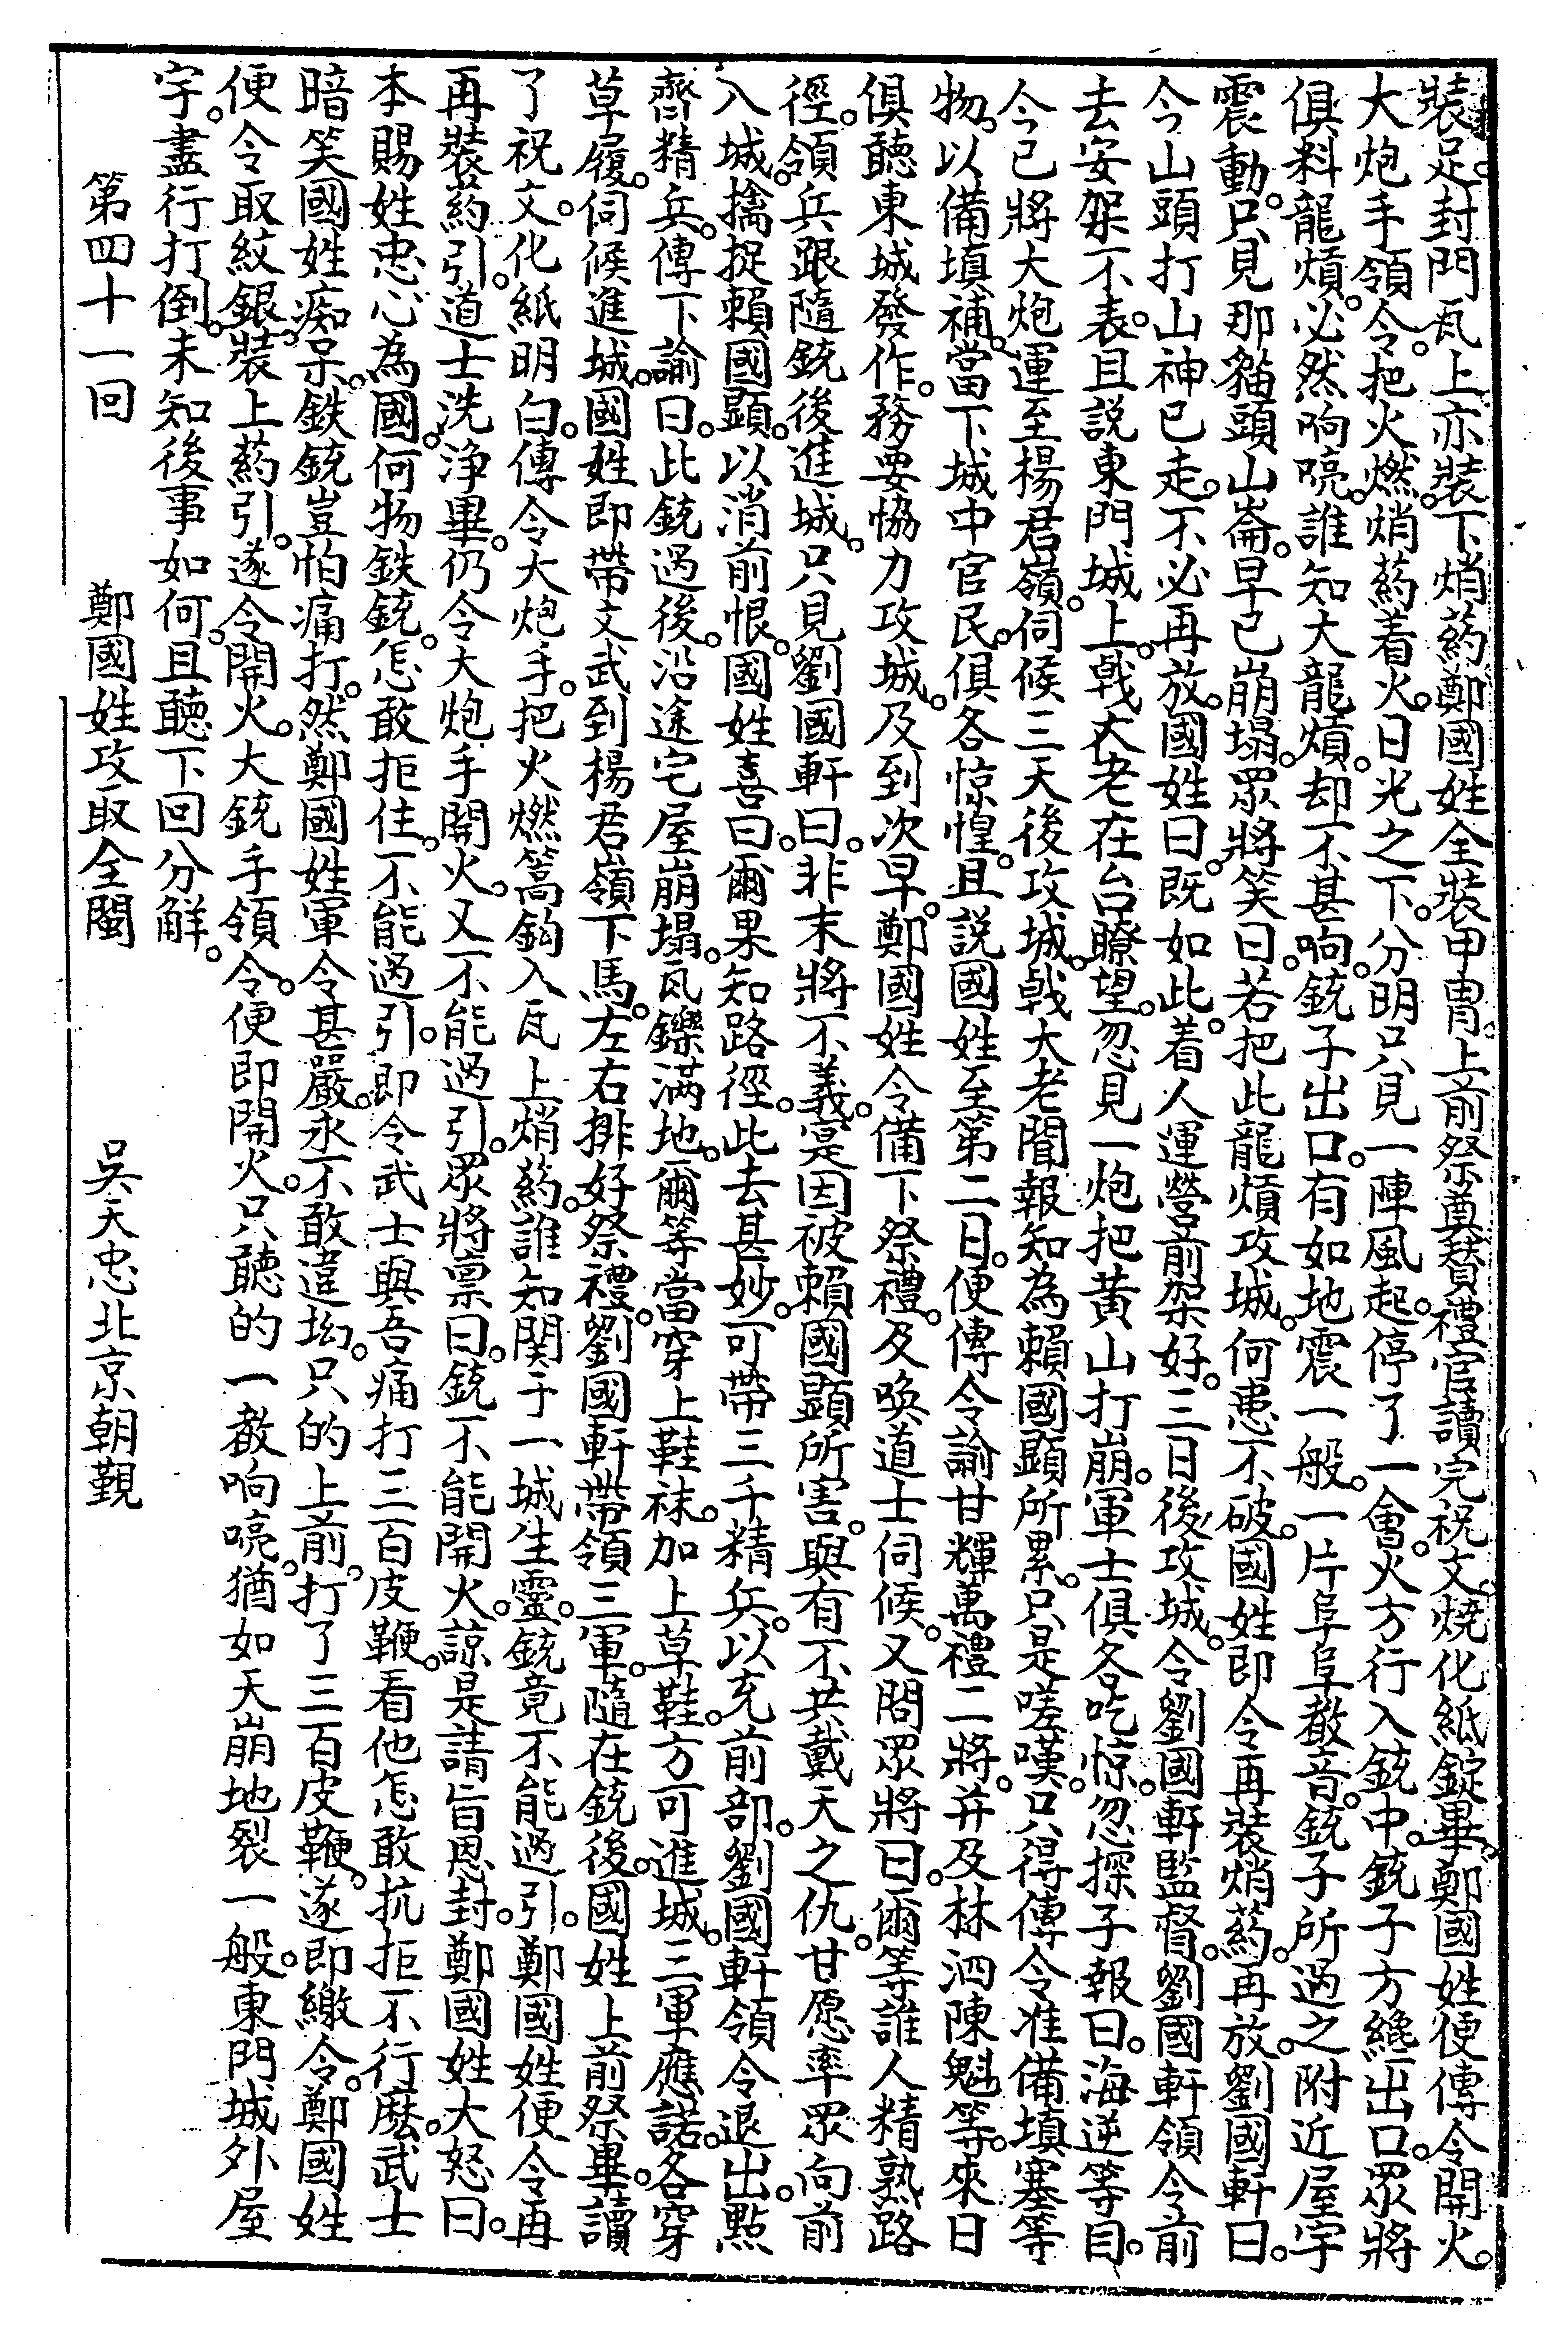 裝足。封門瓦上亦裝下焇葯。鄭國姓全裝甲冑。上前祭奠。賛禮官讀完祝文。燒化紙錠畢。鄭國姓便傳令開火。
大炮手領令。把火燃焇葯着火。日光之下。分明只見一陣風起。停了一會。火方行入銃中。銃子方纔出口。眾將
俱料龍熕。必然响喨。誰知大龍熕。却不甚响。銃子出口。有如地震一般。一片阜阜嗸音。銃子所過之附近屋宇
震動。只見那貓頭山崙。早已崩塌。眾將笑曰。若把此龍熕攻城。何患不破。國姓即令再裝焇葯。再放。劉國軒曰。
今山頭打山神已走。不必再放。國姓曰。既如此。着人運營前架好。三日後攻城。令劉國軒監督。劉國軒領令前
去安架不表。且説東門城上。戟大老在台瞭望。忽見一炮把黃山打崩。軍士俱各吃惊。忽探子報曰。海逆等目。
今已將大炮運至楊君嶺。伺候三天後攻城。戟大老聞報知為賴國顕所累。只是嗟嘆。只得傳令准備填塞等
物。以備填補。當下城中官民。俱各惊惶。且説國姓至第二日。便傳令諭甘輝萬禮二將。并及林泗陳魁等。來日
俱聽東城發作。務要恊力攻城。及到次早。鄭國姓令備下祭禮。及喚道士伺候。又問眾將曰。爾等誰人精熟路
徑。領兵跟隨銃後進城。只見劉國軒曰。非末將不義。寔因被賴國顕所害。與有不共戴天之仇。甘愿率眾向前
入城。擒捉賴國顕。以消前恨。國姓喜曰。爾果知路徑。此去甚妙。可帶三千精兵。以充前部。劉國軒領令退出。點
齊精兵。傳下諭曰。此銃過後。沿途宅屋崩塌。瓦鑠滿地。爾等當穿上鞋袜。加上草鞋。方可進城。三軍應諾。各穿
草履。伺候進城。國姓即帶文武到楊君嶺下馬。左右排好祭禮。劉國軒帶領三軍。隨在銃後。國姓上前祭畢。讀
了祝文。化紙明白。傳令大炮手。把火燃篙鈎入瓦上焇葯。誰知関于一城生靈。銃竟不能過引。鄭國姓便令再
再裝葯引。道士洗浄畢。仍令大炮手開火。又不能過引。眾將禀曰。銃不能開火。諒是請旨恩封。鄭國姓大怒曰。
本賜姓忠心為國。何物鉄銃。怎敢拒住。不能過引。即令武士與吾痛打三百皮鞭。看他怎敢抗拒不行麽。武士
暗笑國姓痴呆。鉄銃豈怕痛打。然鄭國姓軍令甚嚴。永不敢違拗。只的上前。打了三百皮鞭。遂即繳令。鄭國姓
便令取紋銀。裝上葯引。遂令開火。大銃手領令。便即開火。只聽的一嗸响喨。猶如天崩地裂一般。東門城外屋
宇。盡行打倒。未知後事如何。且聽下回分解。
第四十一回　鄭國姓攻取全閩　吳天忠北京朝覲